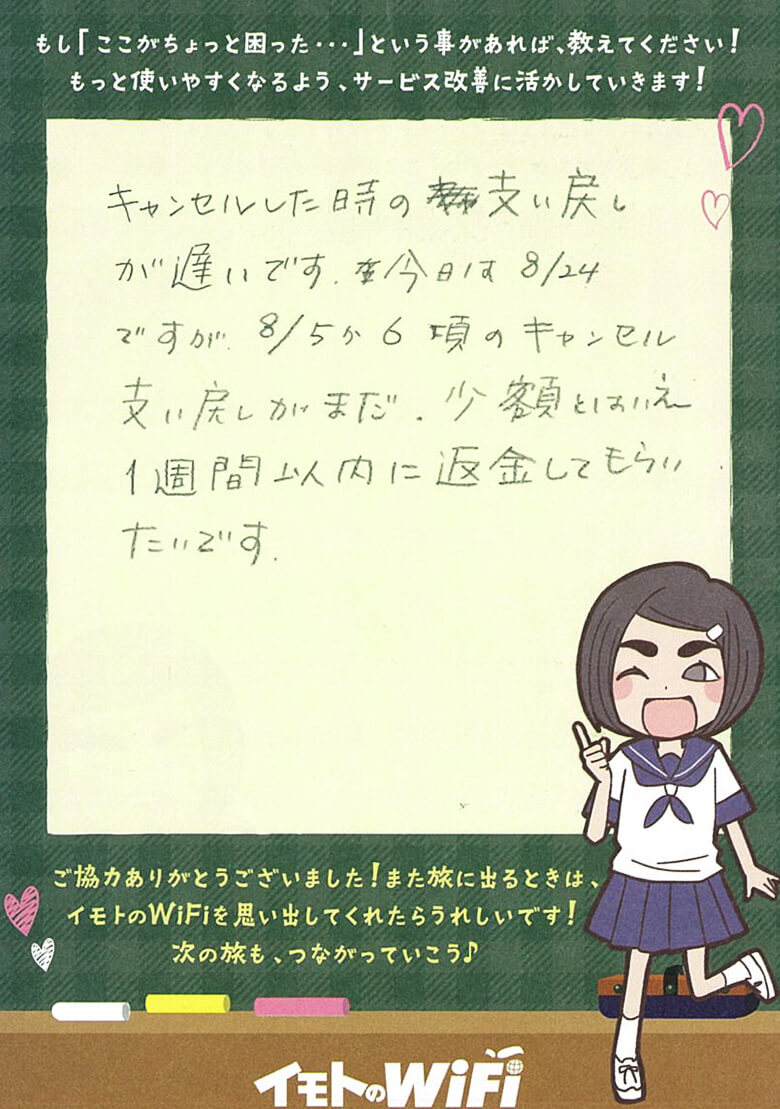 もし「ここがちょっと困った・・・」という事があれば、教えてください！
もっと使いやすくなるよう、サービス改善に活かしていきます！
キャンセルした時の支払い戻し
が遅いです。今日は 8/24
ですが、8/5か6頃のキャンセル
支払い戻しがまだ。少額とはいえ
1週間以内に返金してもらい
たいです。
ご協力ありがとうございました！また旅に出るときは、
イモトのWiFiを思い出してくれたらうれしいです！
次の旅も、つながっていこう♪
イモトのWiFi